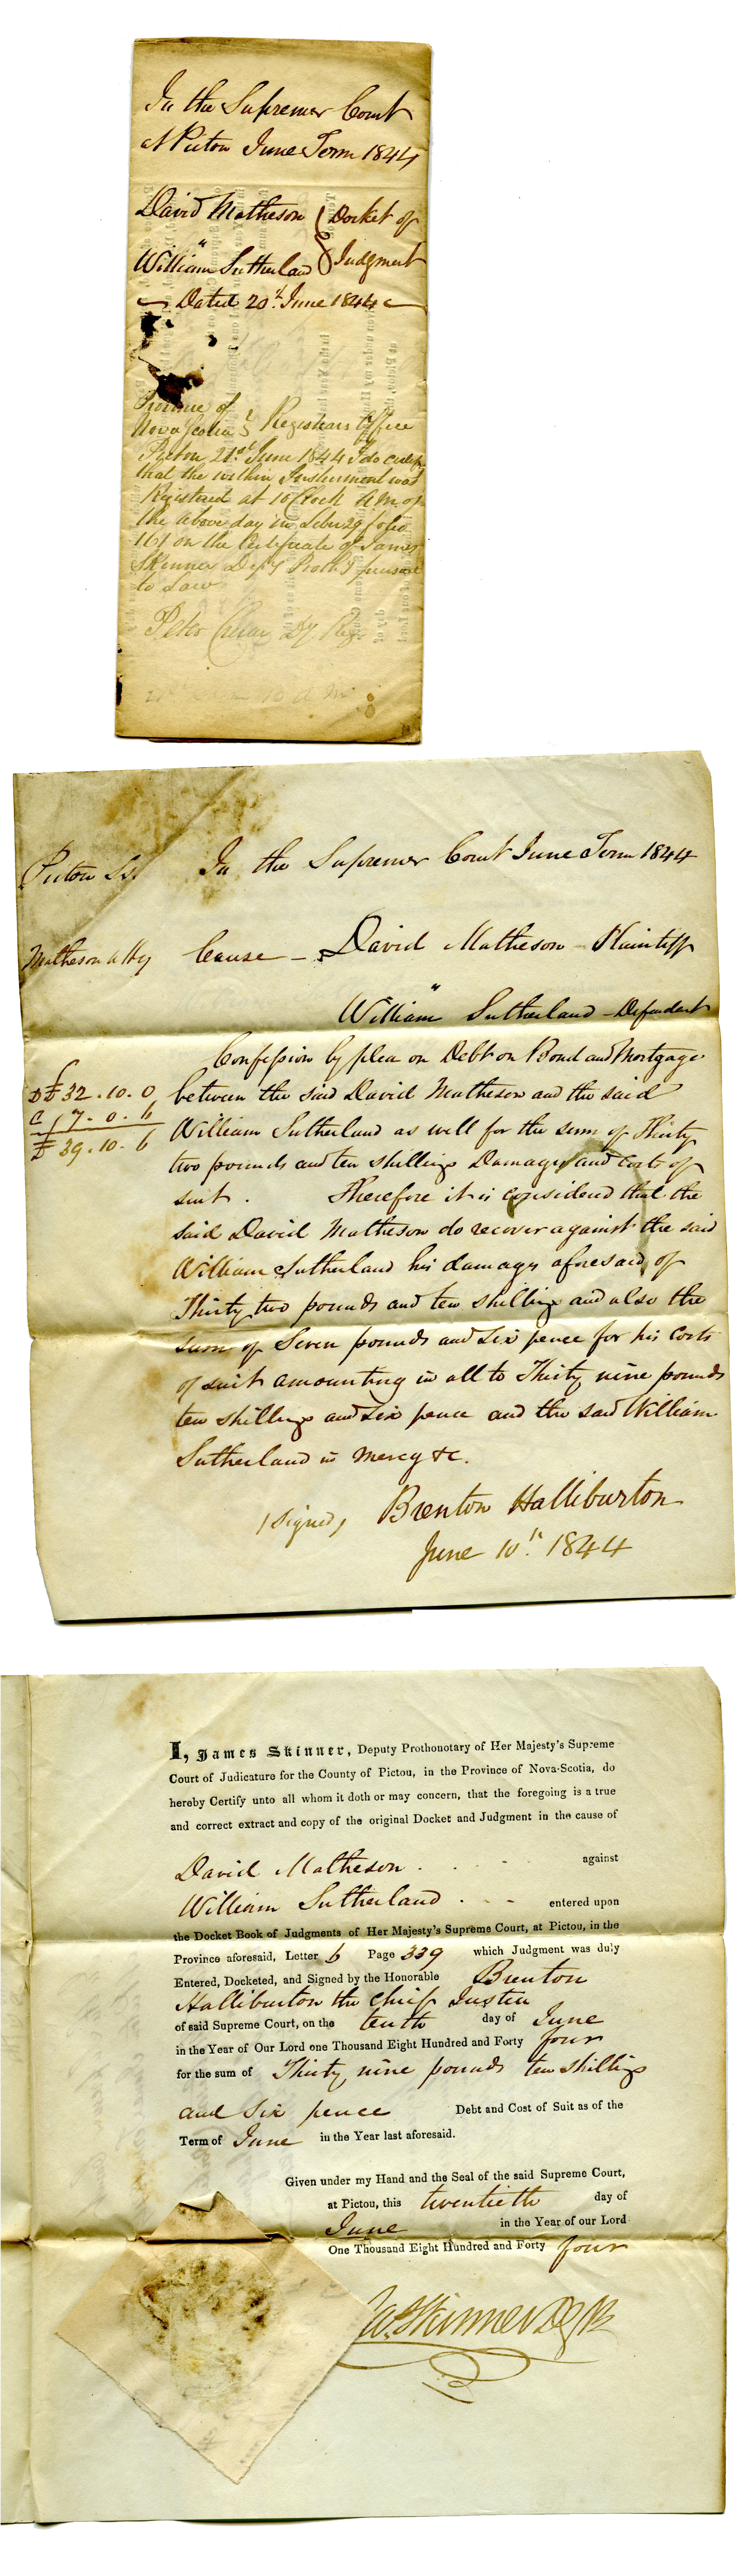 In the Supreme Court
at Pictou June Term 1844
David Matheson } Docket of
"
William Sutherland } Judgment
Dated 20th June 1844
Province of
Nova Scotia } Registrars Office
Pictou 21st June 1844 I do certify
that the within Instrument was
Registered at 10 Clock A M of
the above day in Liber 29 folio
161 on the Certificate of James
Skinner Depy Prothy pursuant
to Law
Peter Crerar Dy Regr
10 A M
Pictou Ss. In the Supreme Court June Term 1844
Matheson atty Cause - David Matheson - Plaintiff
"
William Sutherland - Defendant
Confession by plea on Debt on Bond and Mortgage
Dt £32.10.0 between the said David Matheson and the said
C 7.0.6
£39.10.6 William Sutherland as well for the sum of Thirty
two pounds and ten shillings Damages and costs of
suit. Therefore it is considered that the
said David Matheson do recover against the said
William Sutherland his damages aforesaid of
Thirty two pounds and ten shillings and also the
sum of Seven pounds and six pence for his Costs
of suit amounting in all to Thirty nine pounds
ten shillings and six pence and the said William
Sutherland in mercy &c.
(signed) Brenton Halliburton
June 10th 1844
I, James Skinner, Deputy Prothonotary of Her Majesty's Supreme
Court of Judicature for the County of Pictou, in the Province of Nova-Scotia, do
hereby Certify unto all whom it doth or may concern, that the foregoing is a true
and correct extract and copy of the original Docket and Judgment in the cause of
David Matheson . . . against
William Sutherland . - - entered upon
the Docket Book of Judgments of Her Majesty's Supreme Court, at Pictou, in the
Province aforesaid, Letter 6 Page 339 which Judgment was duly
Entered, Docketed, and Signed by the Honorable Brenton
Halliburton the Chief Justice
of said Supreme Court, on the tenth day of June
in the Year of Our Lord one Thousand Eight Hundred and Forty four
for the sum of Thirty nine pounds ten shillings
and six pence Debt and Cost of Suit as of the
Term of June in the Year last aforesaid.
Given under my Hand and the Seal of the said Supreme Court,
at Pictou, this twentieth day of
June in the Year of our Lord
One Thousand Eight Hundred and Forty four
Jas. Skinner